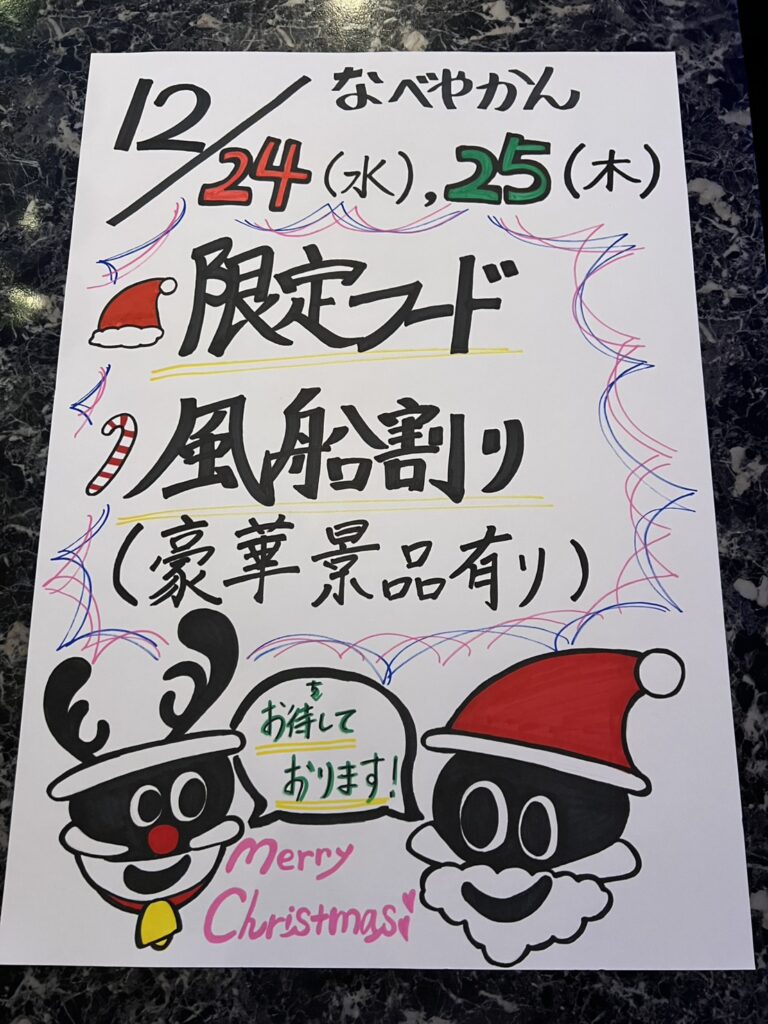 なべやかん
12/24(水),25(木)
限定フード
風船割り
(豪華景品有り)
お待して
おります!
Merry
Christmas